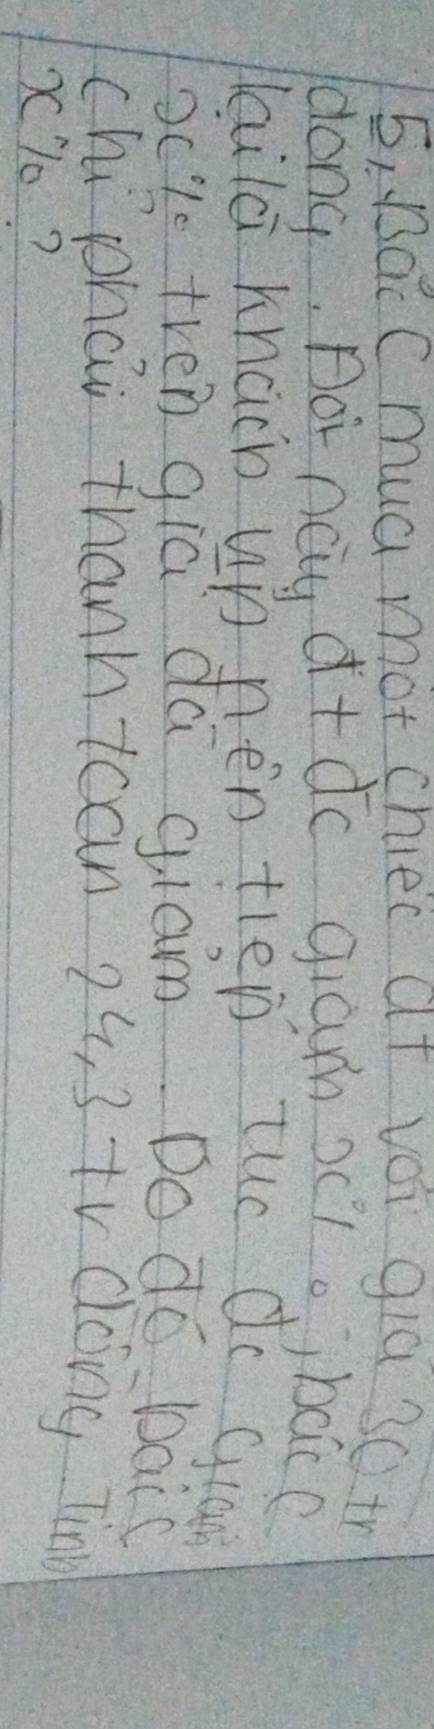 5, Bác C mua một chiếc đt với giá 30 tr
đồng. Đời này đt đc giảm x%, bác C
lại là khách vip nên tiếp tục đc giảm
x% trên giá đã giảm. Do đó, bác C
chỉ phải thanh toán 24,3 tr đồng Tính
x% ?